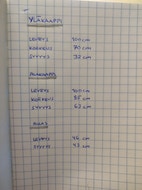 YLÄKAAPPI
LEVEYS 100 cm
KORKEUS 70 cm
SYVYYS 32 cm
ALAKAAPPI
LEVEYS 100 cm
KORKEUS 85 cm
SYVYYS 62 cm
ALLAS
LEVEYS 46 cm
SYVYYS 42 cm